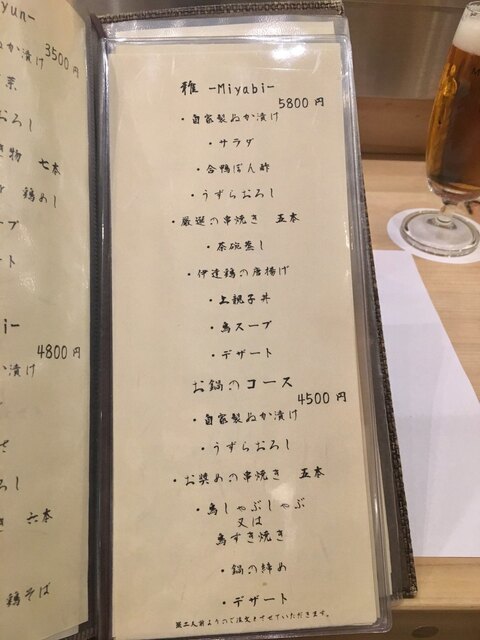 yun-
3500円
ぬか漬け
おろし
き物 七本
鶏めし
ープ
ート
i-
4800円
か漬け
ろし
き 六本
鶏そば
雅 -Miyabi-
5800円
・自家製ぬか漬け
・サラダ
・合鴨ぽん酢
・うずらおろし
・厳選の串焼き 五本
・茶碗蒸し
・伊達鶏の唐揚げ
・上親子丼
・鳥スープ
・デザート
お鍋のコース
4500円
・自家製ぬか漬け
・うずらおろし
・お奨めの串焼き 五本
・鳥しゃぶしゃぶ
又は
鳥すき焼き
・鍋の締め
・デザート
※二人前よりのご注文とさせていただきます。